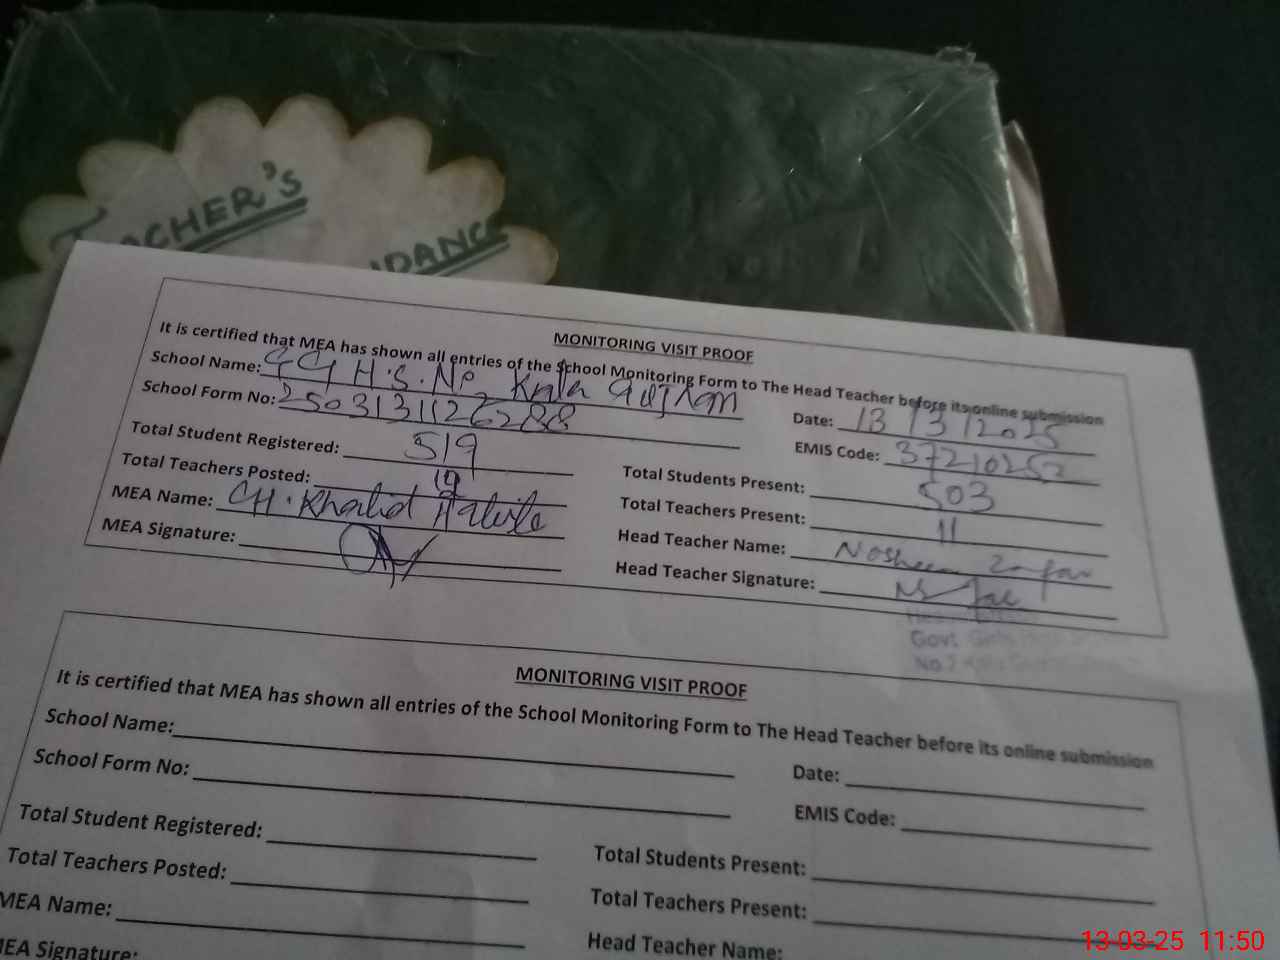 TEACHER'S
MONITORING VISIT PROOF
It is certified that MEA has shown all entries of the School Monitoring Form to The Head Teacher before its online submission
School Name: GGH.S. No Kala Gujran
Date: 13/3/2025
School Form No: 2503131126288
EMIS Code: 37210252
Total Student Registered: 519
Total Students Present: 503
Total Teachers Posted:
Total Teachers Present: 11
MEA Name: CH. Khalid
Head Teacher Name: Nosheen Zafar
MEA Signature:
Head Teacher Signature:
Govt Girls
MONITORING VISIT PROOF
It is certified that MEA has shown all entries of the School Monitoring Form to The Head Teacher before its online submission
School Name:
Date:
School Form No:
EMIS Code:
Total Student Registered:
Total Students Present:
Total Teachers Posted:
Total Teachers Present:
MEA Name:
Head Teacher Name:
MEA Signature:
13-03-25 11:50